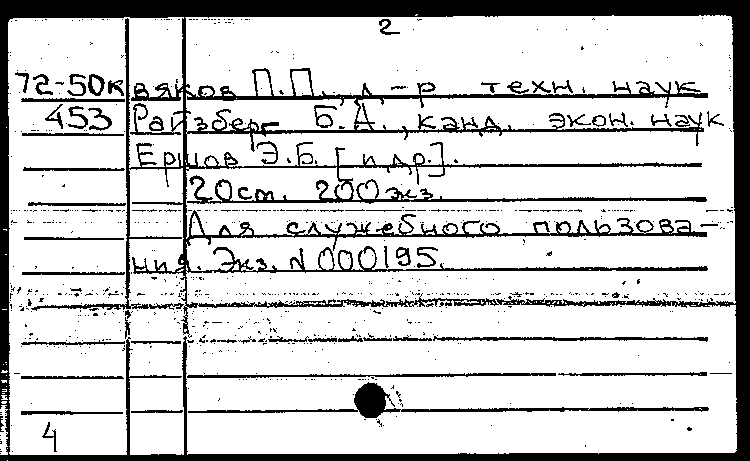 2
72-50к вяков П.П., д-р техн. наук
453 Райзберг Б.А., канд. экон. наук
Ершов Э.Б. [и др.].
20 cm. 200 экз.
Для служебного пользова-
ния. Экз. N 000195.
4